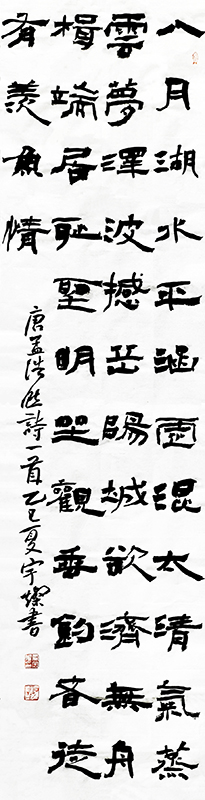 八月湖水平涵虛混太清氣蒸
雲夢澤波撼岳陽城欲濟無舟
楫端居恥聖明坐觀垂釣者徒
有羨魚情
唐孟浩然詩一首乙巳夏宇燦書